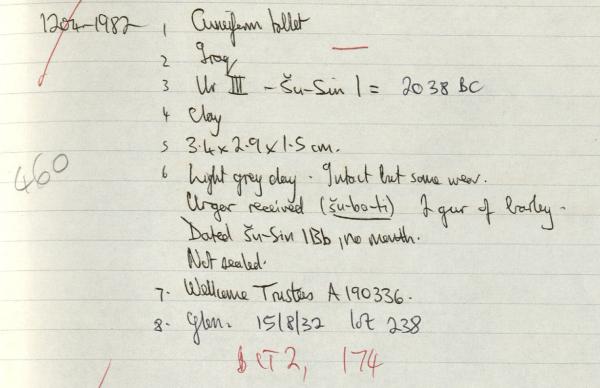 1204-1982 1 Cuneiform tablet
2 Iraq
3 Ur III - Šu-Sin 1 = 2038 BC
4 Clay
5 3.4 x 2.9 x 1.5 cm.
460
6 Light grey clay. Intact but some wear.
Urger received (šu-ba-ti) 2 gur of barley.
Dated Šu-Sin 1Bb, no month.
Not sealed.
7. Wellcome Trustees A190336.
8. Glen. 15/8/32 lot 238
BCT 2, 174